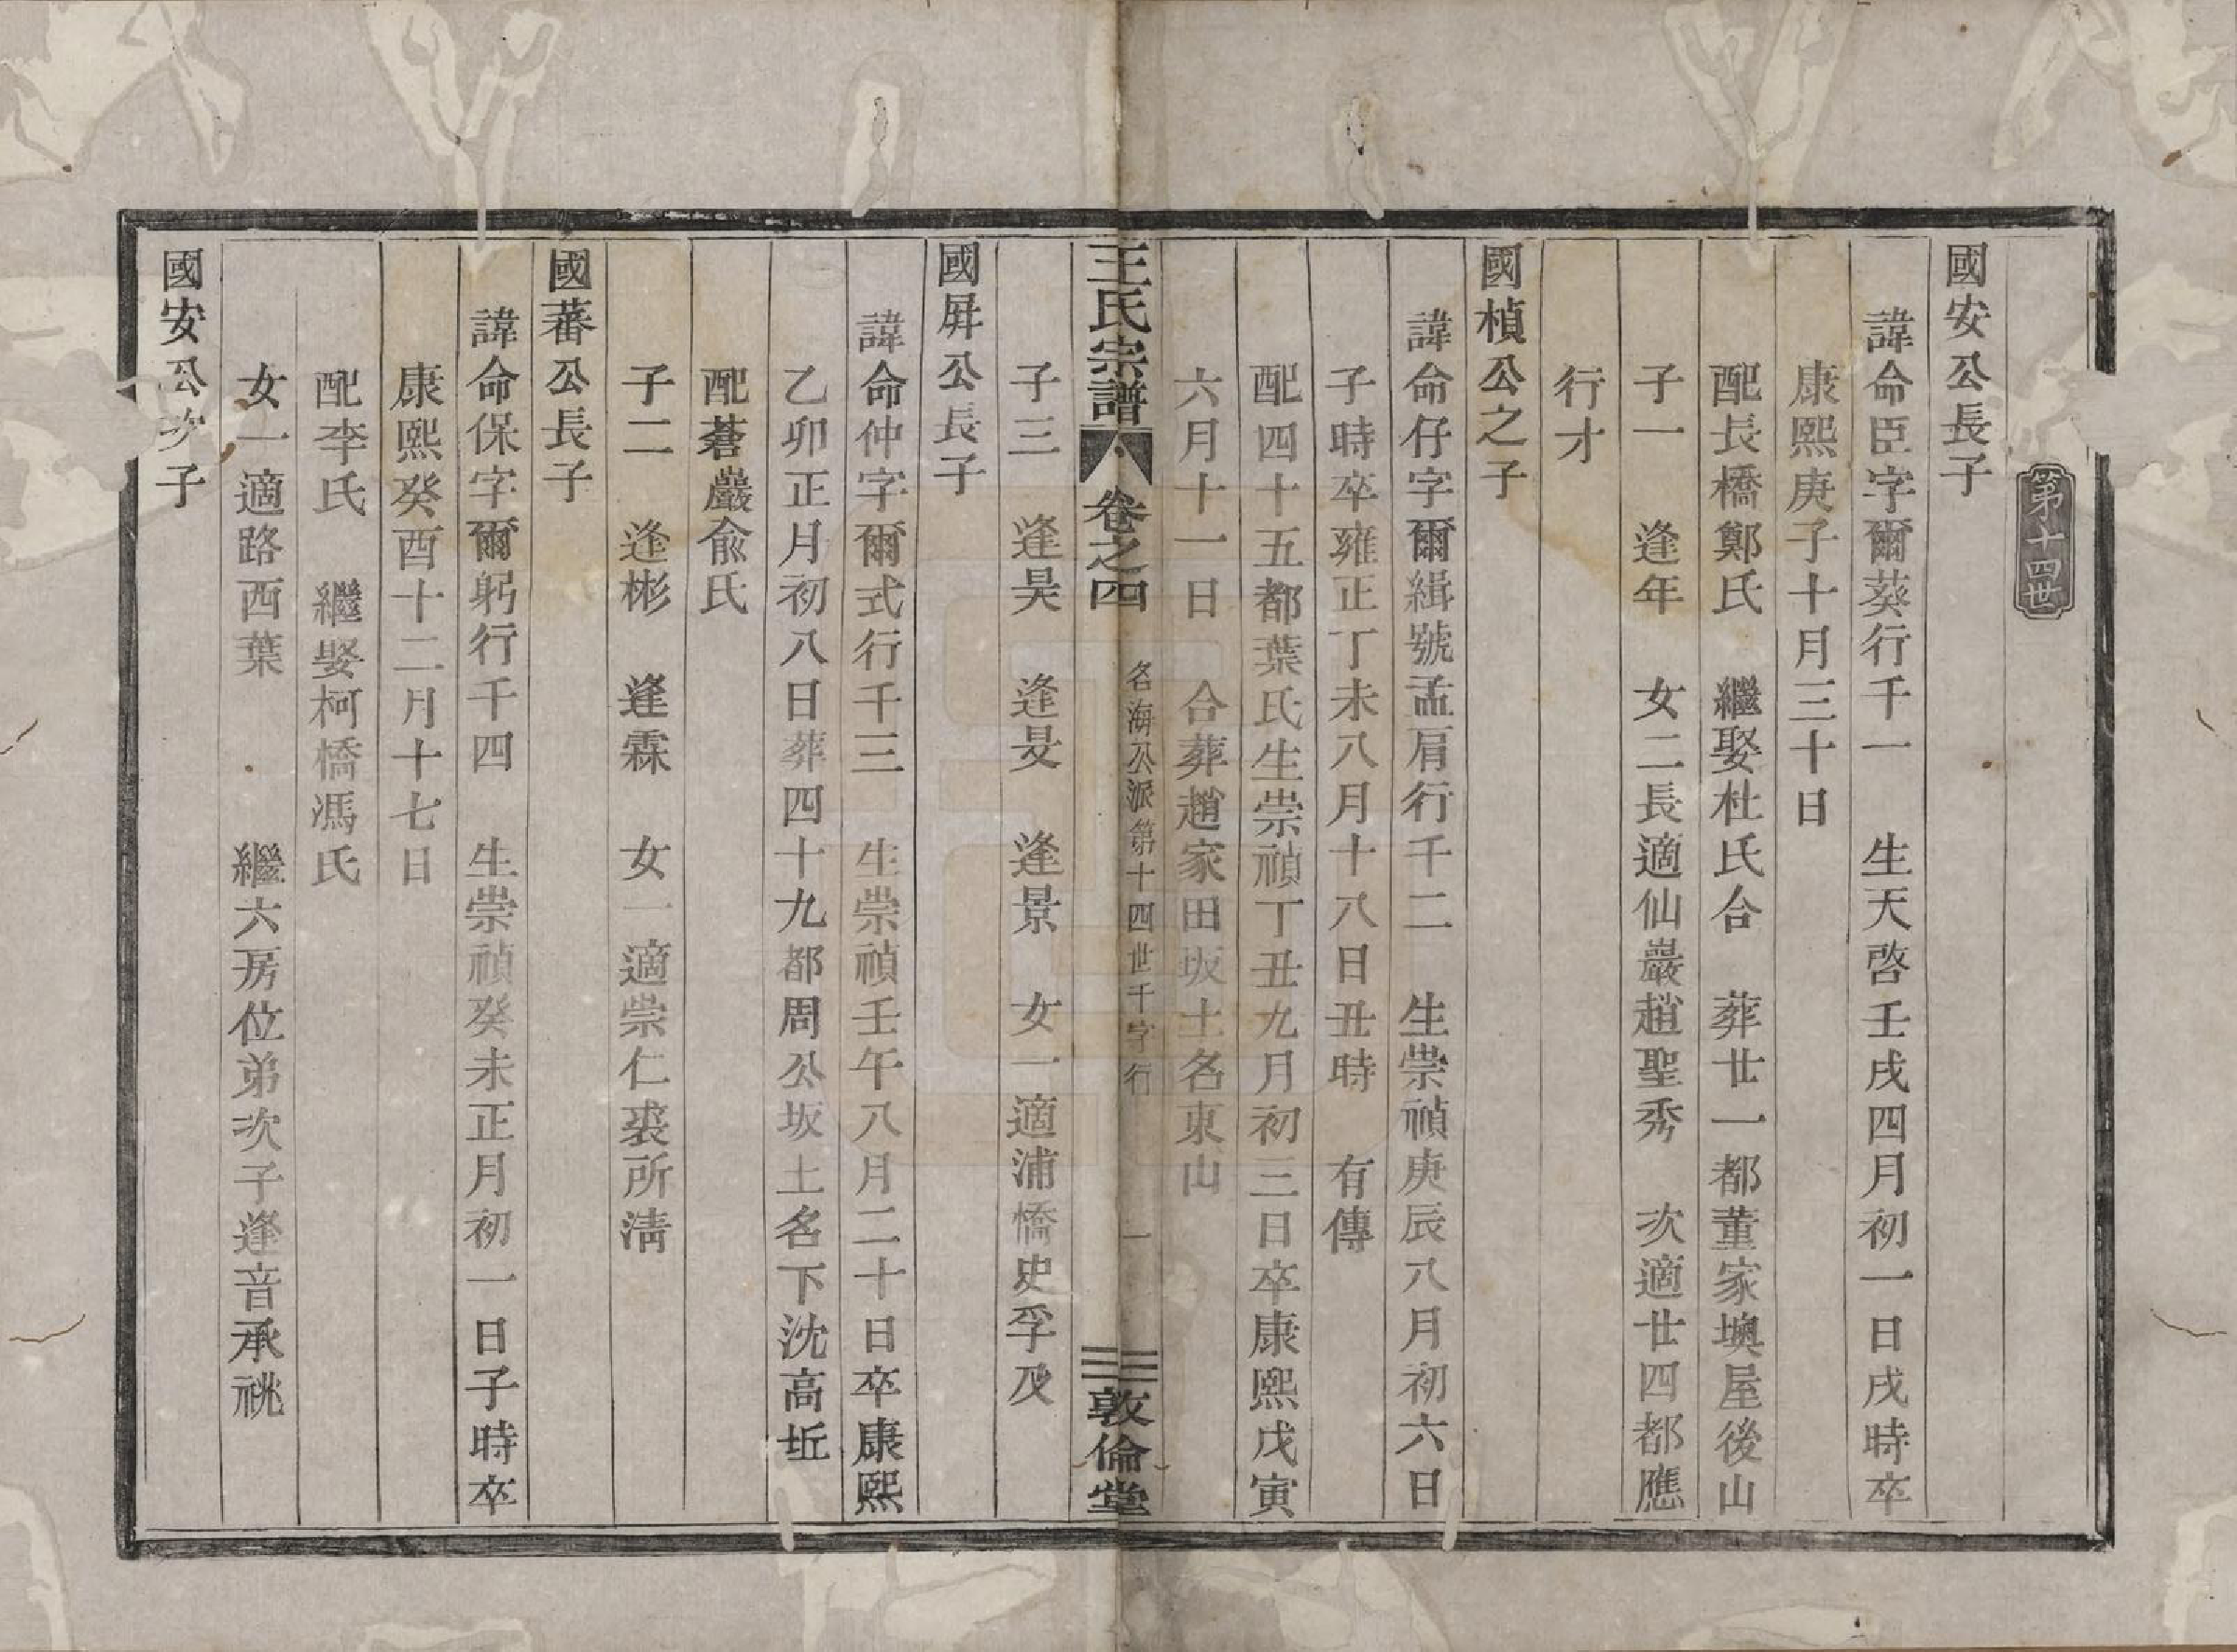 第十四世
國安公長子
諱命臣字爾葵行千一　生天啓壬戌四月初一日戌時卒
康熙庚子十月三十日
配長橋鄭氏　繼娶杜氏合　葬廿一都董家墺屋後山
子一　逢年　女二長適仙巖趙聖秀　次適廿四都應
行才
國楨公之子
諱命仔字爾緝號孟肩行千二　生崇禎庚辰八月初六日
子時卒雍正丁未八月十八日丑時　有傳
配四十五都葉氏生崇禎丁丑九月初三日卒康熙戊寅
六月十一日　合葬趙家田坂土名東山
王氏宗譜　卷之四　名海公派第十四世千字行　一　敦倫堂
子三　逢昊　逢旻　逢景　女一適浦橋史孚及
國屏公長子
諱命仲字爾式行千三　生崇禎壬午八月二十日卒康熙
乙卯正月初八日葬四十九都周公坂土名下沈高坵
配蒼巖俞氏
子二　逢彬　逢霖　女一適崇仁裘所淸
國蕃公長子
諱命保字爾躬行千四　生崇禎癸未正月初一日子時卒
康熙癸酉十二月十七日
配李氏　繼娶柯橋馮氏
女一適路西葉　繼六房位弟次子逢音承祧
國安公次子